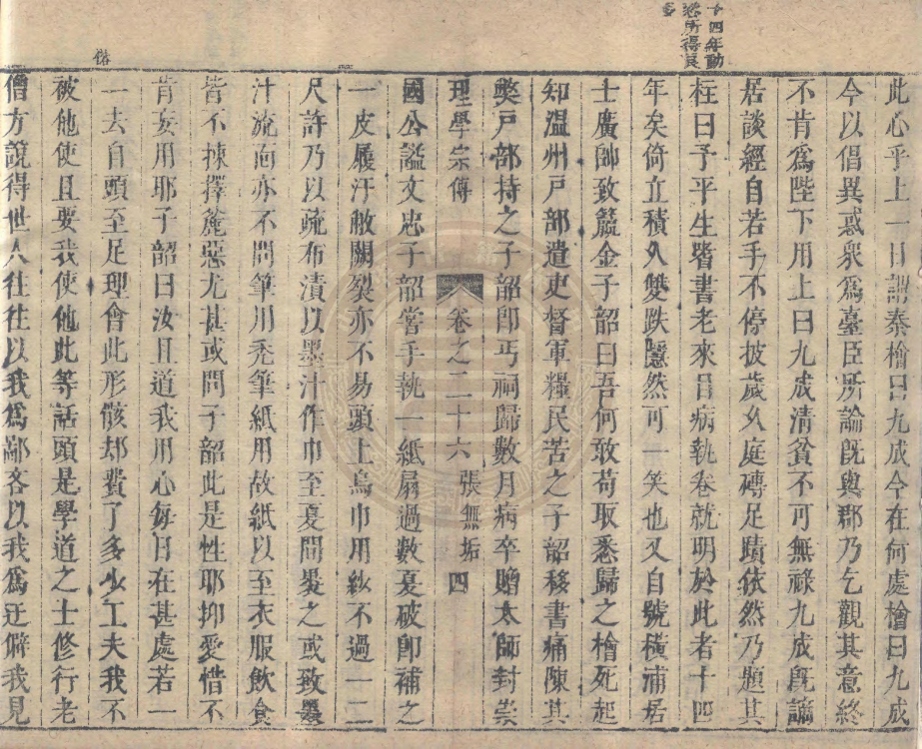 十四年勤
苦所得良
多
此心乎上一日謂秦檜曰九成今在何處檜曰九成
今以倡異惑衆爲臺臣所論旣與郡乃乞觀其意終
不肯爲陛下用上曰九成清貧不可無祿九成旣謫
居談經自若手不停披歲久庭磚足蹟依然乃題其
柱曰予平生嗜書老來目病執卷就明於此者十四
年矣倚立積久雙趺隱然可一笑也又自號橫浦居
士廣帥致籯金子韶曰吾何敢苟取悉歸之檜死起
知溫州戶部遣吏督軍糧民苦之子韶移書痛陳其
獘戶部持之子韶卽丐祠歸數月病卒贈太師封崇
理學宗傳 卷之二十六 張無垢 四
國公謚文忠子韶嘗手執一紙扇過數夏破卽補之
一皮履汗敝闕裂亦不易頭上烏巾用紗不過一二
尺許乃以疏布漬以墨汁作巾至夏間裛之或致墨
汁流面亦不問筆用禿筆紙用故紙以至衣服飲食
皆不揀擇麄惡尤甚或問子韶此是性耶抑愛惜不
肯妄用耶子韶曰汝且道我用心每日在甚處若一
一去自頭至足理會此形骸却費了多少工夫我不
俗
被他使且要我使他此等話頭是學道之士修行老
僧方說得世人往往以我爲鄙吝以我爲迂僻我見